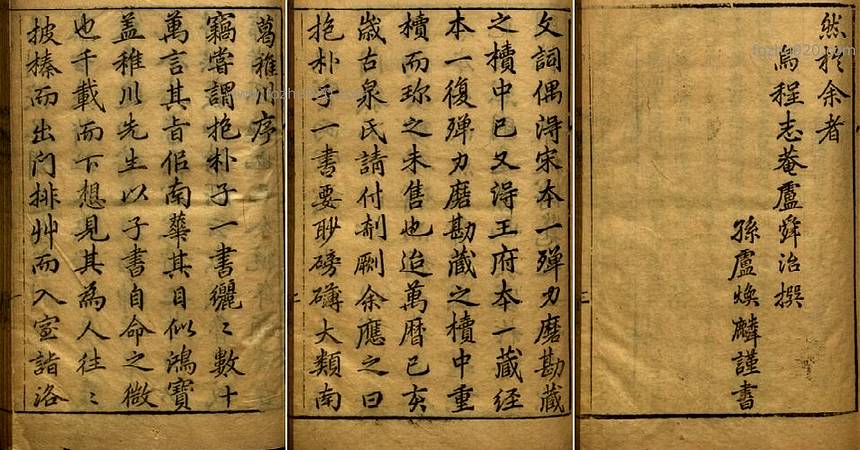 葛稚川序
竊嘗謂抱朴子一書纚〻數十
萬言其旨侶南華其目似鴻寶
盖稚川先生以子書自命之微
也千載而下想見其為人往〻
披榛而出门排艸而入室詣洛
文詞偶淂宋本一殫力磨勘藏
之櫝中已又淂王府本一藏经
本一復殫力磨勘藏之櫝中重
櫝而珎之未售也迨萬曆己亥
嵗古泉氏請付剞劂余應之曰
抱朴子一書要眇磅礴大類南
然於余者
烏程志菴盧舜治撰
孫盧煥麟謹書